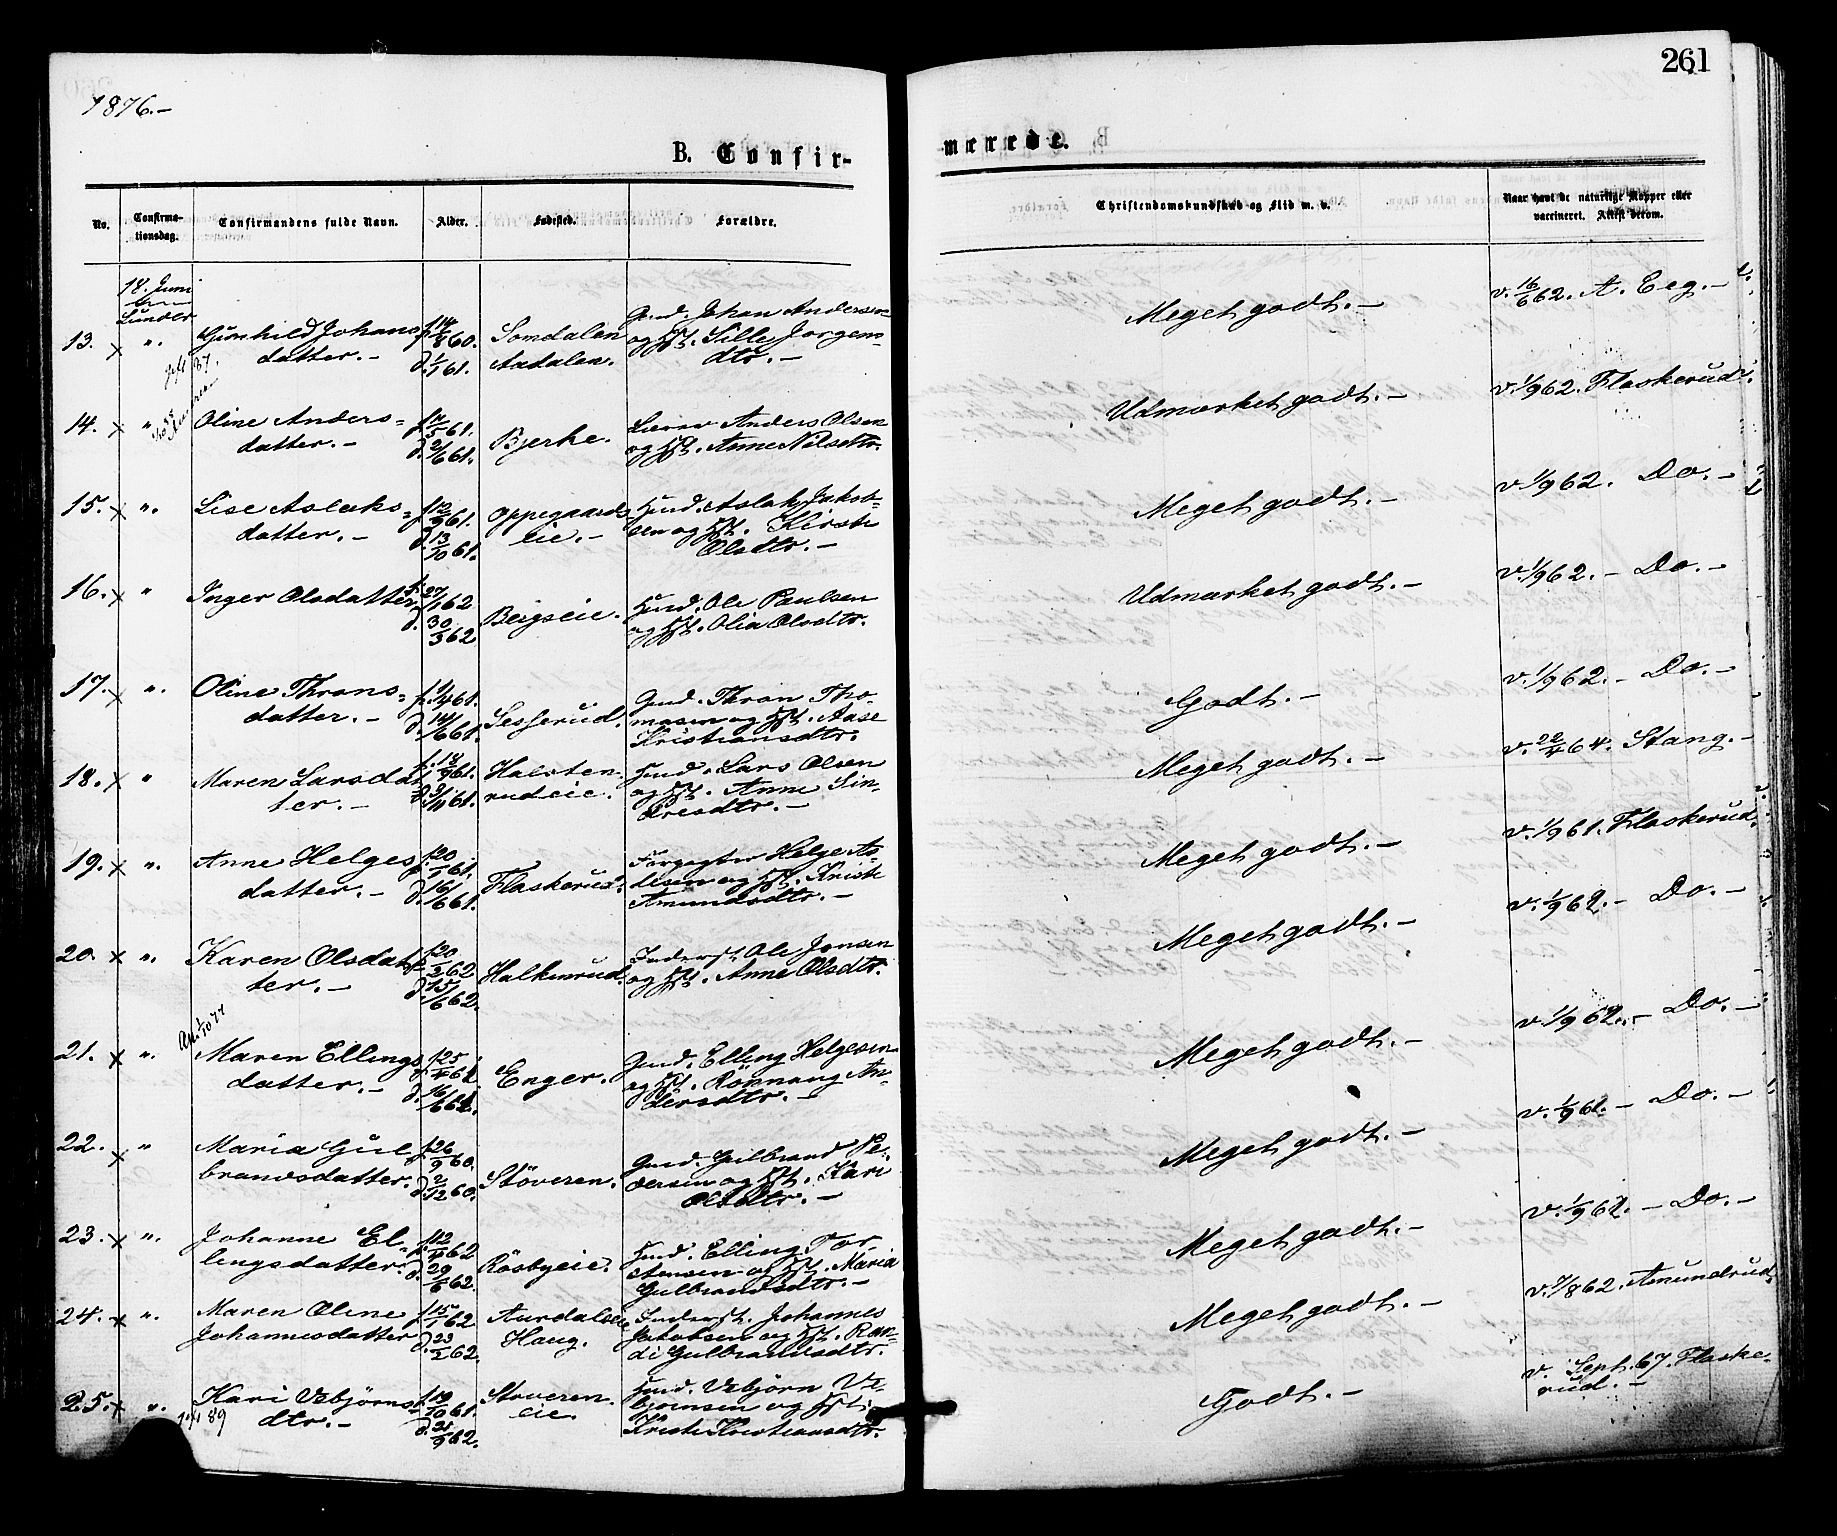 261
1876.-
B. Confir-
merede.
No.
Confirma-
tionsdag.
Confirmandens fulde Navn.
Alder.
Fødested.
Forældre.
Christendomskundskab og Flid m. v.
Naar havt de naturlige Kopper eller
vaccineret. Attest derom.
18. Juni
Lunder
13. × ". Gunhild Johans
datter.-
f. 14/8 60.
d. 1/1 61.
Somdalen
Aadalen.
Gmd. Johan Andersen
og Hst. Sille Jørgens-
dtr.-
Meget godt.-
v. 16/6 62. A. Eeg.-
gift 87.
14. × " Oline Anders-
datter.-
f. 17/5 61.
d. 2/6 61.
Bjerke.
Lærer Anders Olsen
og Hst. Anne Nilsdtr.
Udmærket godt.-
v. 1/9 62. Flaskerud.
15. × ". Lise Aslaks-
datter.-
f. 12/9 61.
d. 13/10 61.
Oppegaards
eie.-
Husd. Aslak Jakob-
sen og Hst. Kirsti
Olsdtr.-
Meget godt.-
v. 1/9 62. Do.-
16. × " Inger Olsdatter
f. 27/1 62
d. 30/3 62
Bergseie.
Husd. Ole Paulsen
og Hst. Olia Olsdtr.
Udmærket godt.-
v. 1/9 62.- Do.-
17. × ". Oline Throns-
datter.-
f. 1/4 61.
d. 14/6 61.
Sesserud.
Gmd. Thron Tho-
masen og Hst. Aase
Kristiansdtr.
Godt.-
v. 1/9 62.- Do.-
18. × " Maren Larsdat
ter.-
f. 18/9 61.
d. 3/11 61.
Halsten-
rudeie.
Husd. Lars Olsen
og Hst. Anne Sin-
dresdtr.-
Meget godt.-
v. 22/4 64. Stang.-
19. × ". Anne Helges
datter.-
f. 20/1 61.
d. 16/6 61.
Flaskerud.
Forpagter Helge As-
lesen og Hst. Kristi
Amundsdtr.-
Meget godt.-
v. 1/9 61. Flaskerud.
20. × ". Karen Olsdat
ter.-
f. 20/2 62
d. 15/6 62.
Halkinrud.
Inderst. Ole Jonsen
og Hst. Anne Olsdtr.
Meget godt.-
v. 1/9 62.- Do.-
21. × ". Maren Ellings
datter.-
f. 25/4 61.
d. 16/6 61.
Enger.
Gmd. Elling Helgesen
og Hst. Rönnaug An-
dersdtr.-
Meget godt.-
v. 1/9 62.- Do.-
22. × " Maria Gul
brandsdatter.
f. 26/9 60.
d. 2/12 60.
Stöveren.
Gmd. Gulbrand Pe-
dersen og Hst. Kari
Olsdtr.-
Meget godt.-
v. 1/9 61.- Do.-
23. × ". Johanne El-
lingsdatter.
f. 12/4 62
d. 29/5 62.
Rösbyeie.
Husd. Elling Tor-
stensen og Hst. Maria
Gulbrandsdtr.-
Meget godt.-
v. 1/9 62.- Do.-
24. × ". Maren Oline
Johannesdatter
f. 15/1 62
d. 23/2 62.
Aurdalseie
Haug.
Inderst. Johannes
Jakobsen og Hst. Ran-
di Gulbrandsdtr.
Meget godt.-
v. 9/8 62. Amundrud.
25. × ". Kari Vebjørns
dtr.-
gift 89
f. 19/10 61.
Stoveren-
eie.
Husd. Vebjörn Ve-
björnsen og Hst.
Kristi Kristiansdtr.
Godt.-
v. Sept. 67. Flaske-
rud.-